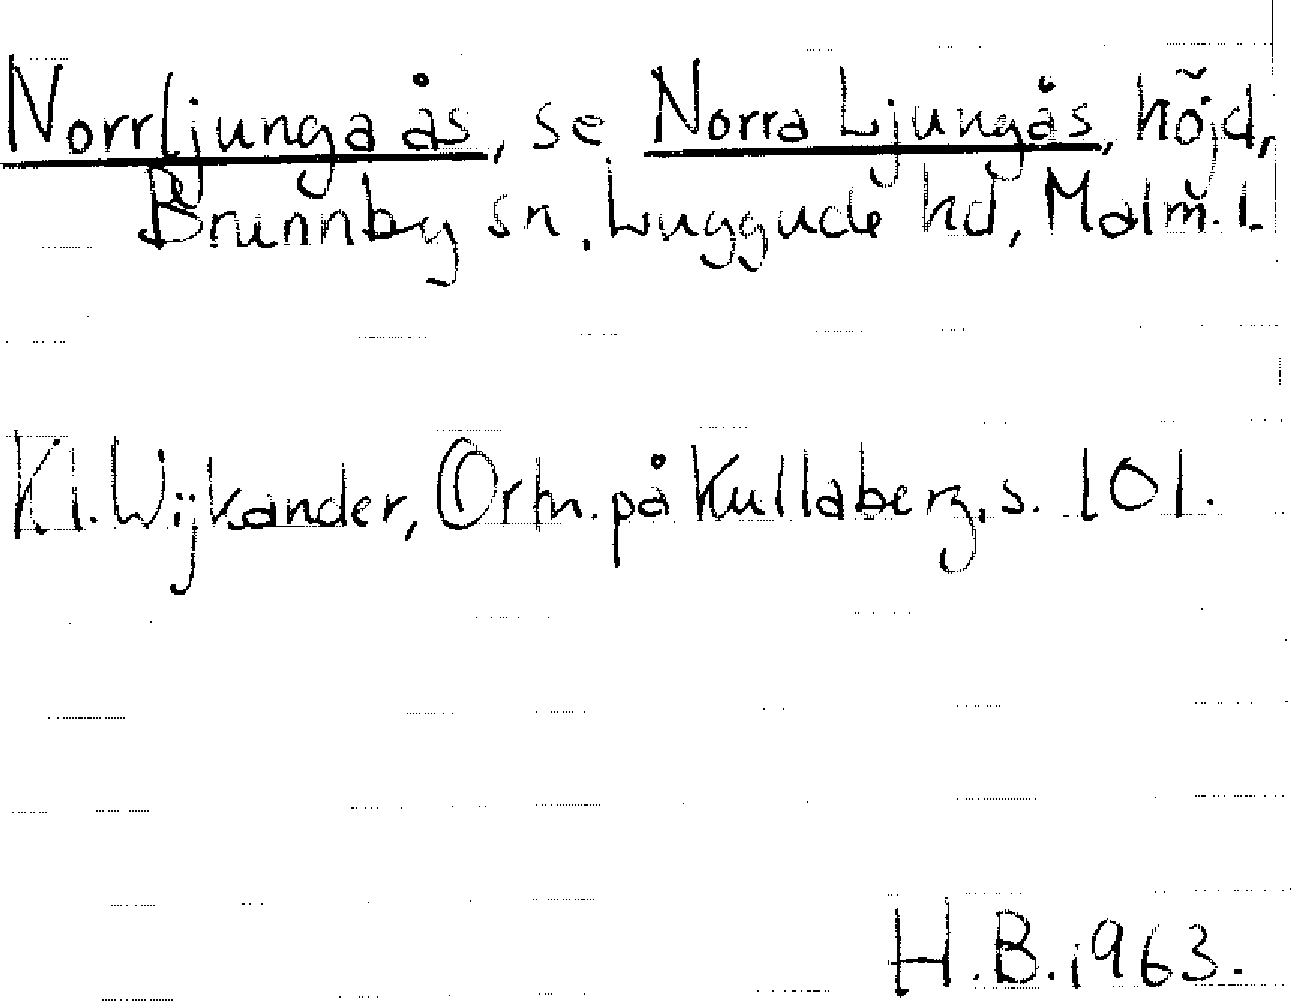 Norrljunga ås, se Norra Ljungås, höjd,
Brunnby sn. Luggude hd, Malm. l.
Kl. Wijkander, Ortn. på Kullaberg, s. 101.
H.B. 1963.